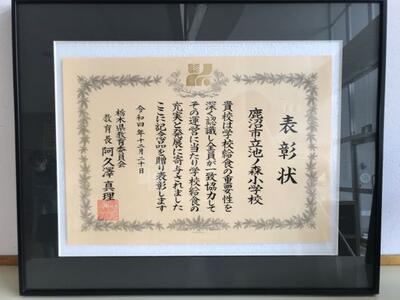 表彰状
鹿沼市立池ノ森小学校
貴校は学校給食の重要性を
深く認識し全員が一致協力して
その運営に当たり学校給食の
充実と発展に寄与されました
ここに記念品を贈り表彰します
令和四年十二月二十日
栃木県教育委員会
教育長 阿久澤真理